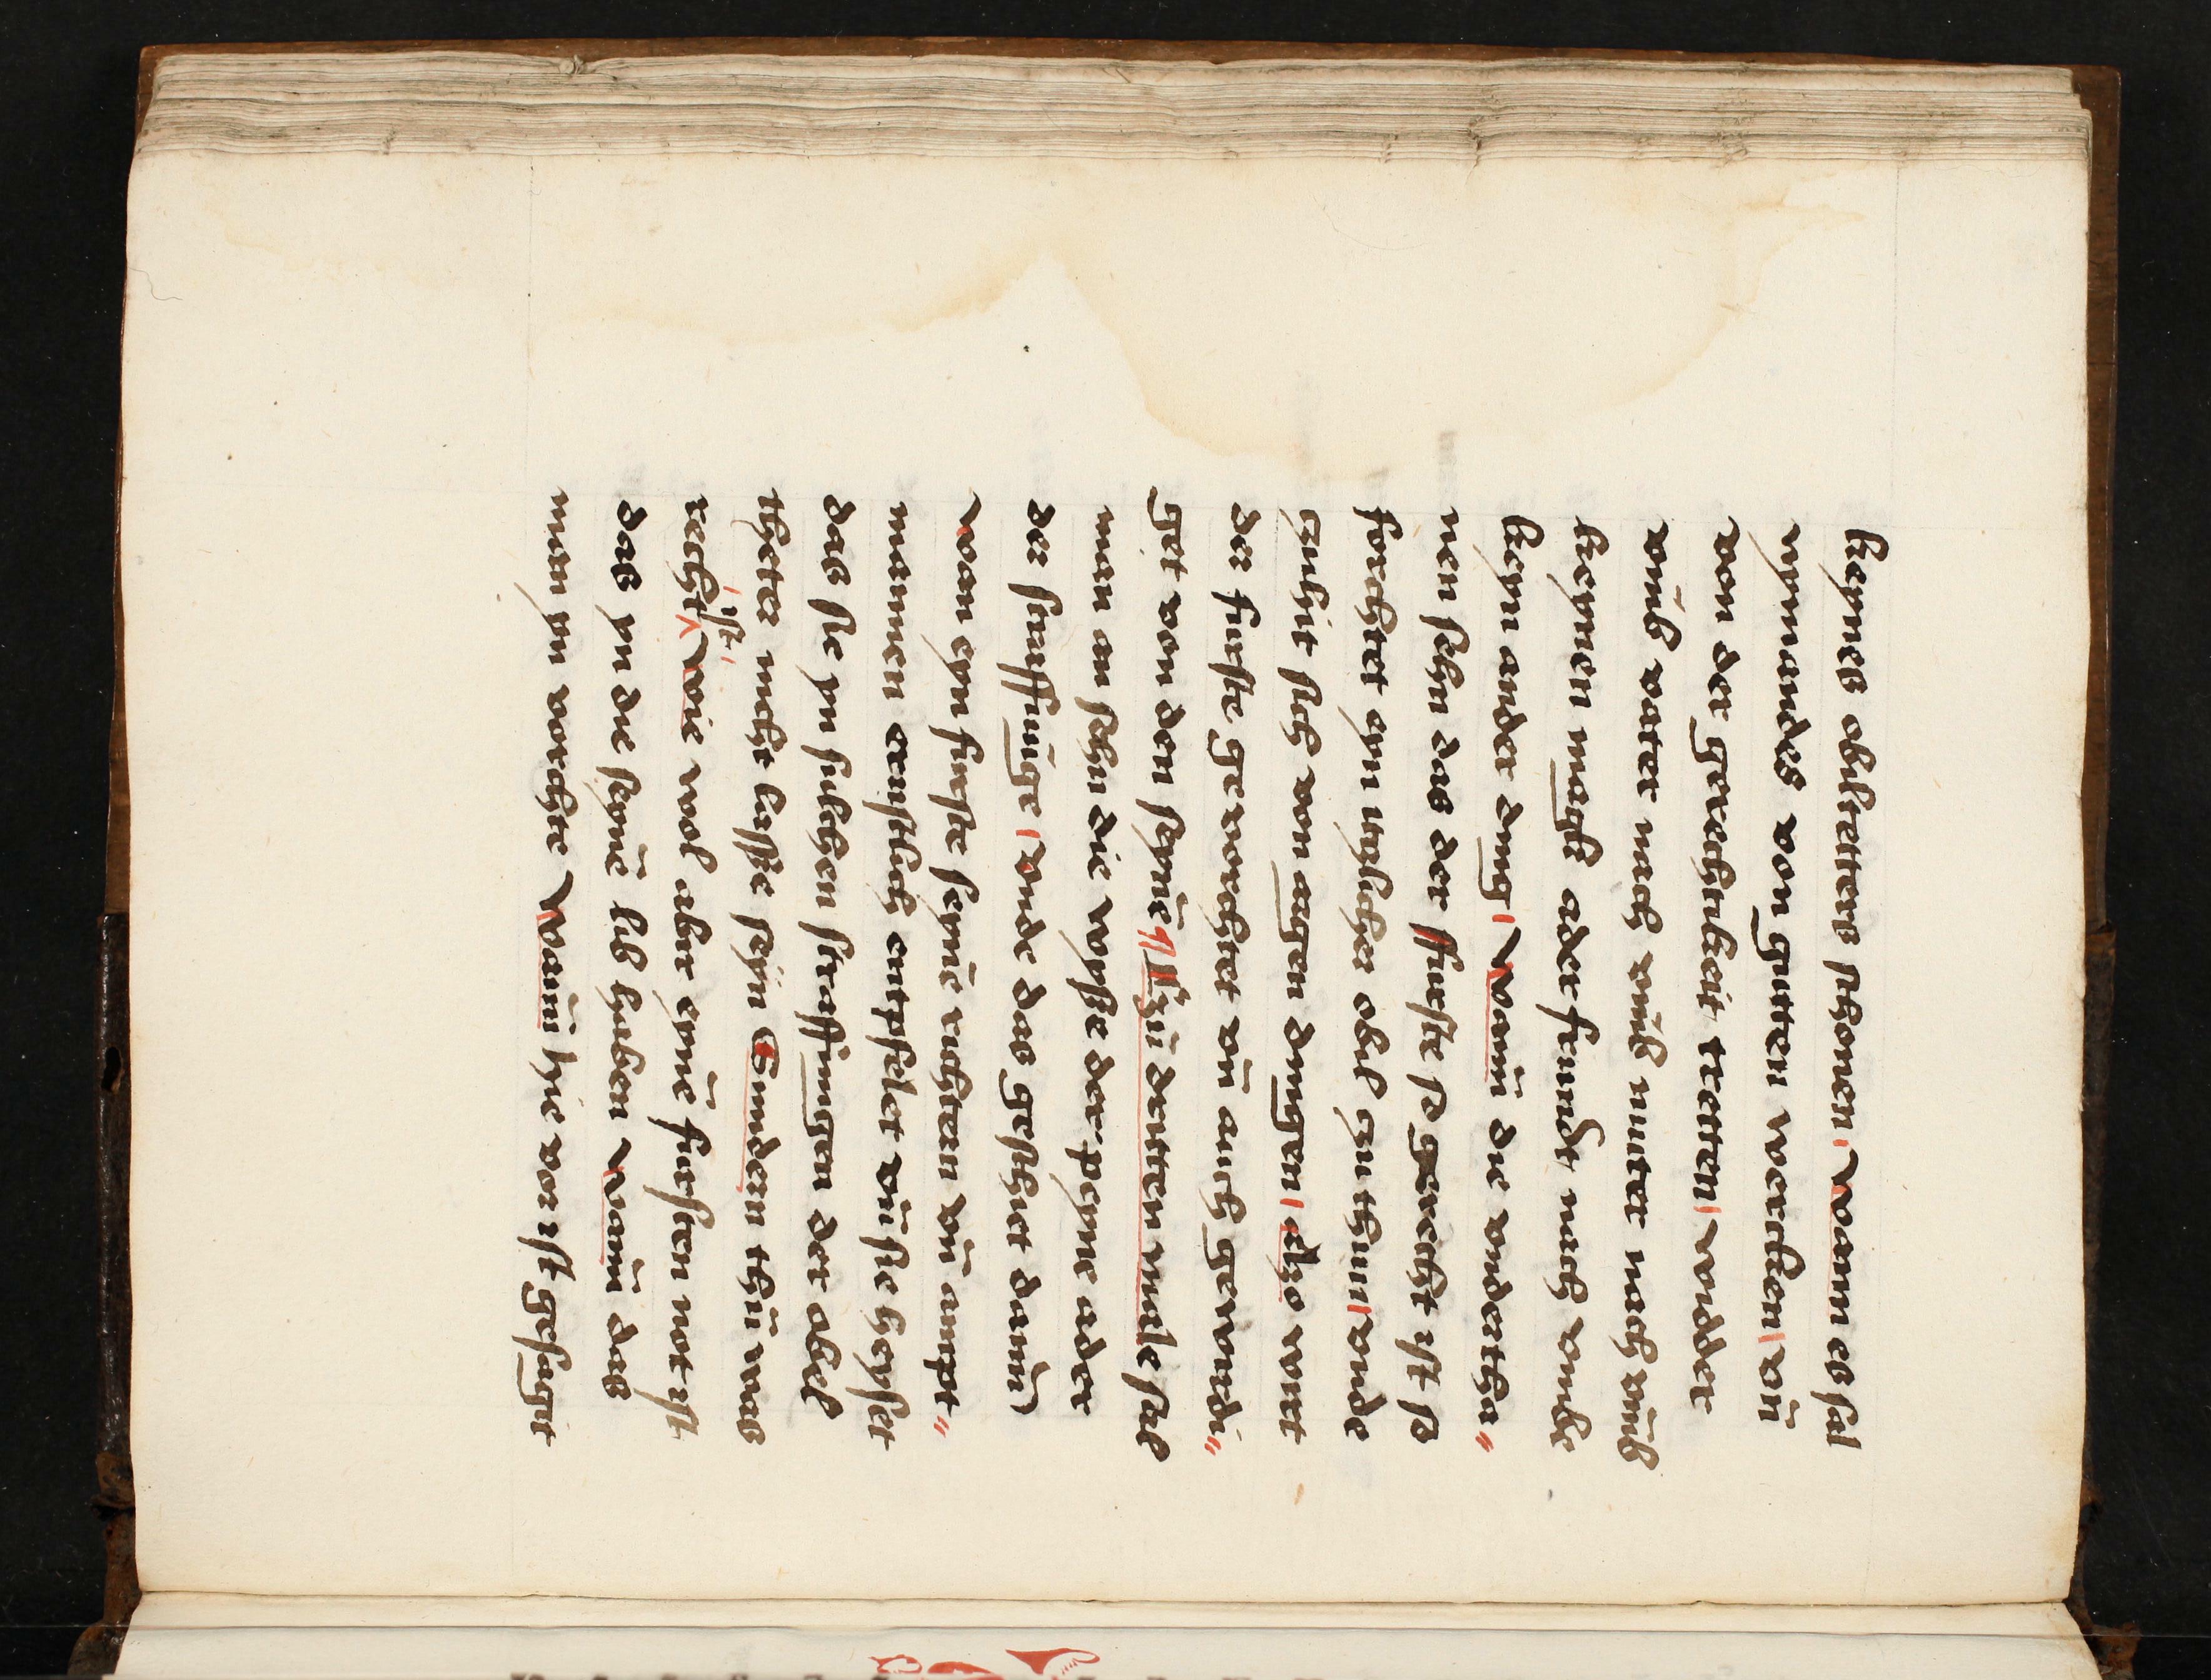 keynes obiltetters schonen / wann es sal
nymandes von gutten wercken / vn̄
von der gerechtikeit tretten / widder
vm̄b vater nach vm̄b muter nach vm̄b
keynen magk ader frunde nach vmbe
keyn ander ding / wan̄ die vndertha"
nen sehn das der furste so gerecht ist so
forchtet eyn itzlicher obil zuthun / vnde
zuhit sich von argen dingen / also wirt
der furste gevorchtet vn̄ auch gewirdi"
get von den seynē ¶ Czu dritten male sal
man an sehn die wyße der peyne ader
der straffunge / vnde das geschiet dann
wan eyn furste seynē richtern vn̄ ampt"
mannen ernstlich entpfelet vn̄ sie heysset
das sie yn sulchen straffungen der obel
theter nicht laße seyn Sundern thun was
recht ist / wie wol abir eynē fursten not ist
das yn die seynē lib haben wan̄ das
man yn vorchte wan̄ hie vor ist gesagit